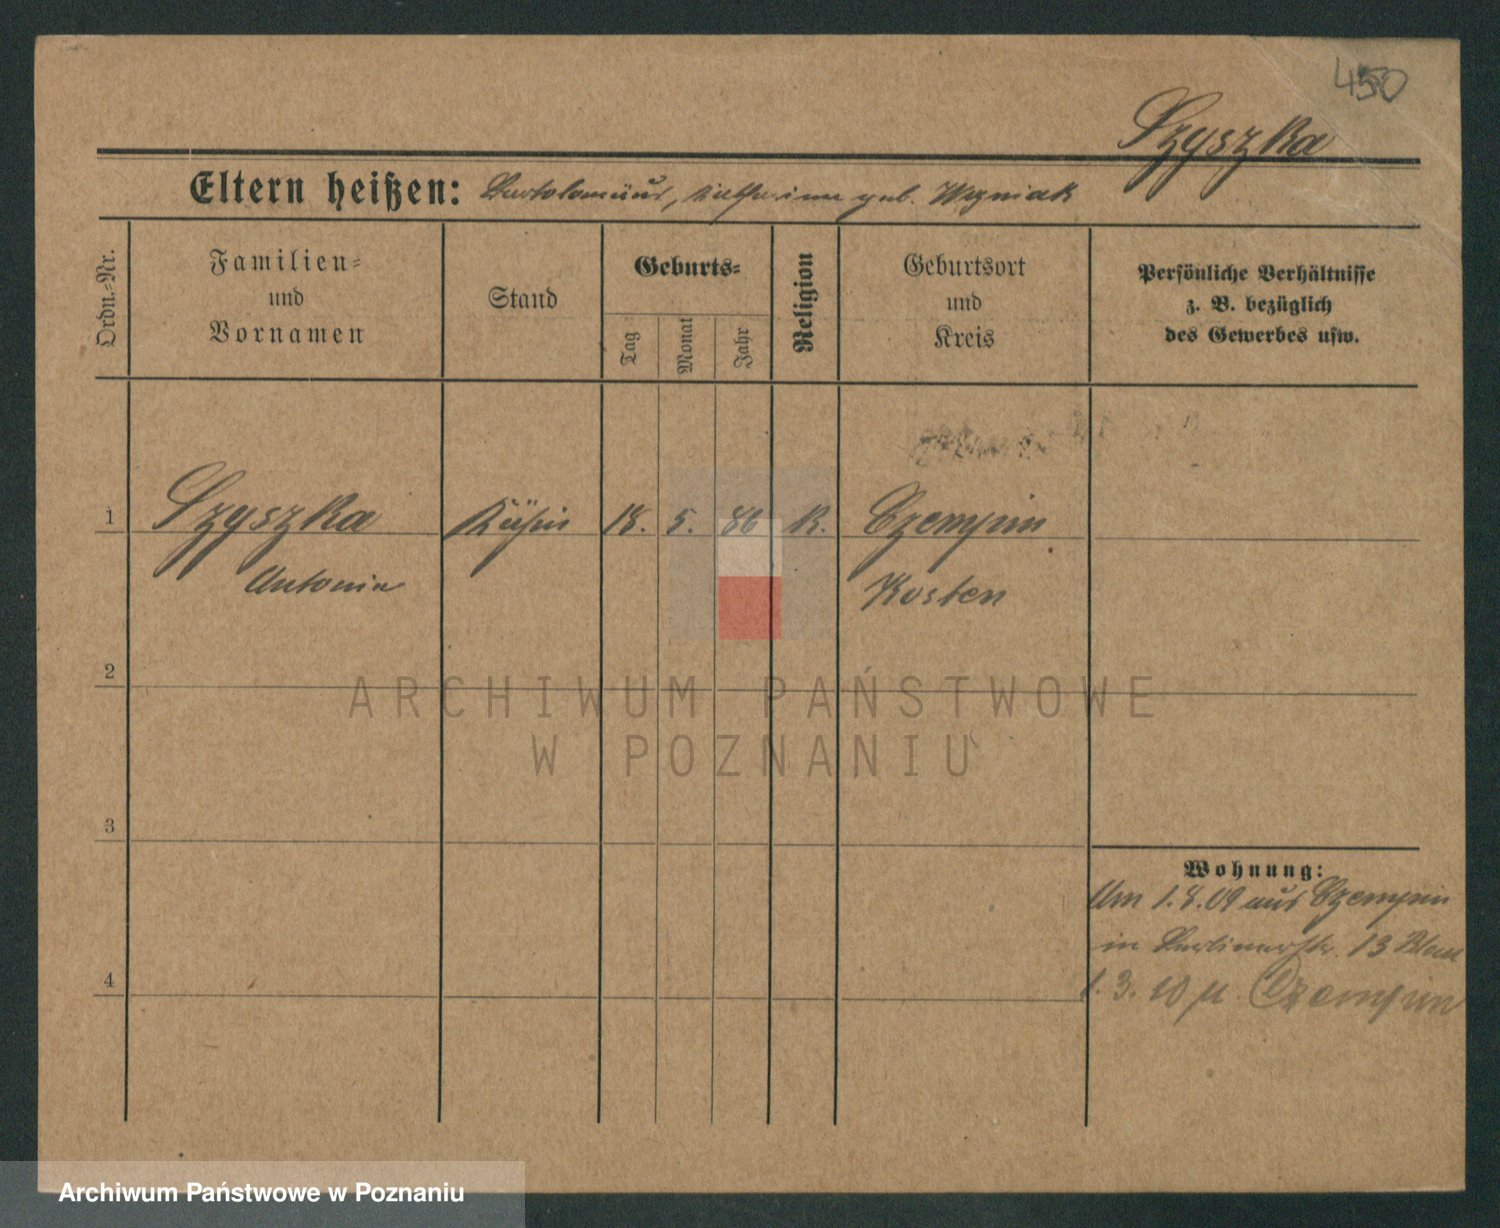 450
Szyszka
Eltern heißen: Bartolomäus, Katharina geb. Wozniak
Ordn.-Nr.
Familien-
und
Vornamen
Stand
Geburts-
Tag
Monat
Jahr
Religion
Geburtsort
und
Kreis
Persönliche Verhältnisse
z. B. bezüglich
des Gewerbes usw.
1 Szyszka 18. 5. 86 K. Czempin
Antonia Kosten
2
ARCHIWUM PAŃSTWOWE
W POZNANIU
3
Wohnung:
Am 1.8.09 aus Czempin
in Berlinerstr. 13
4
1.3.10 n. Czempin
Archiwum Państwowe w Poznaniu